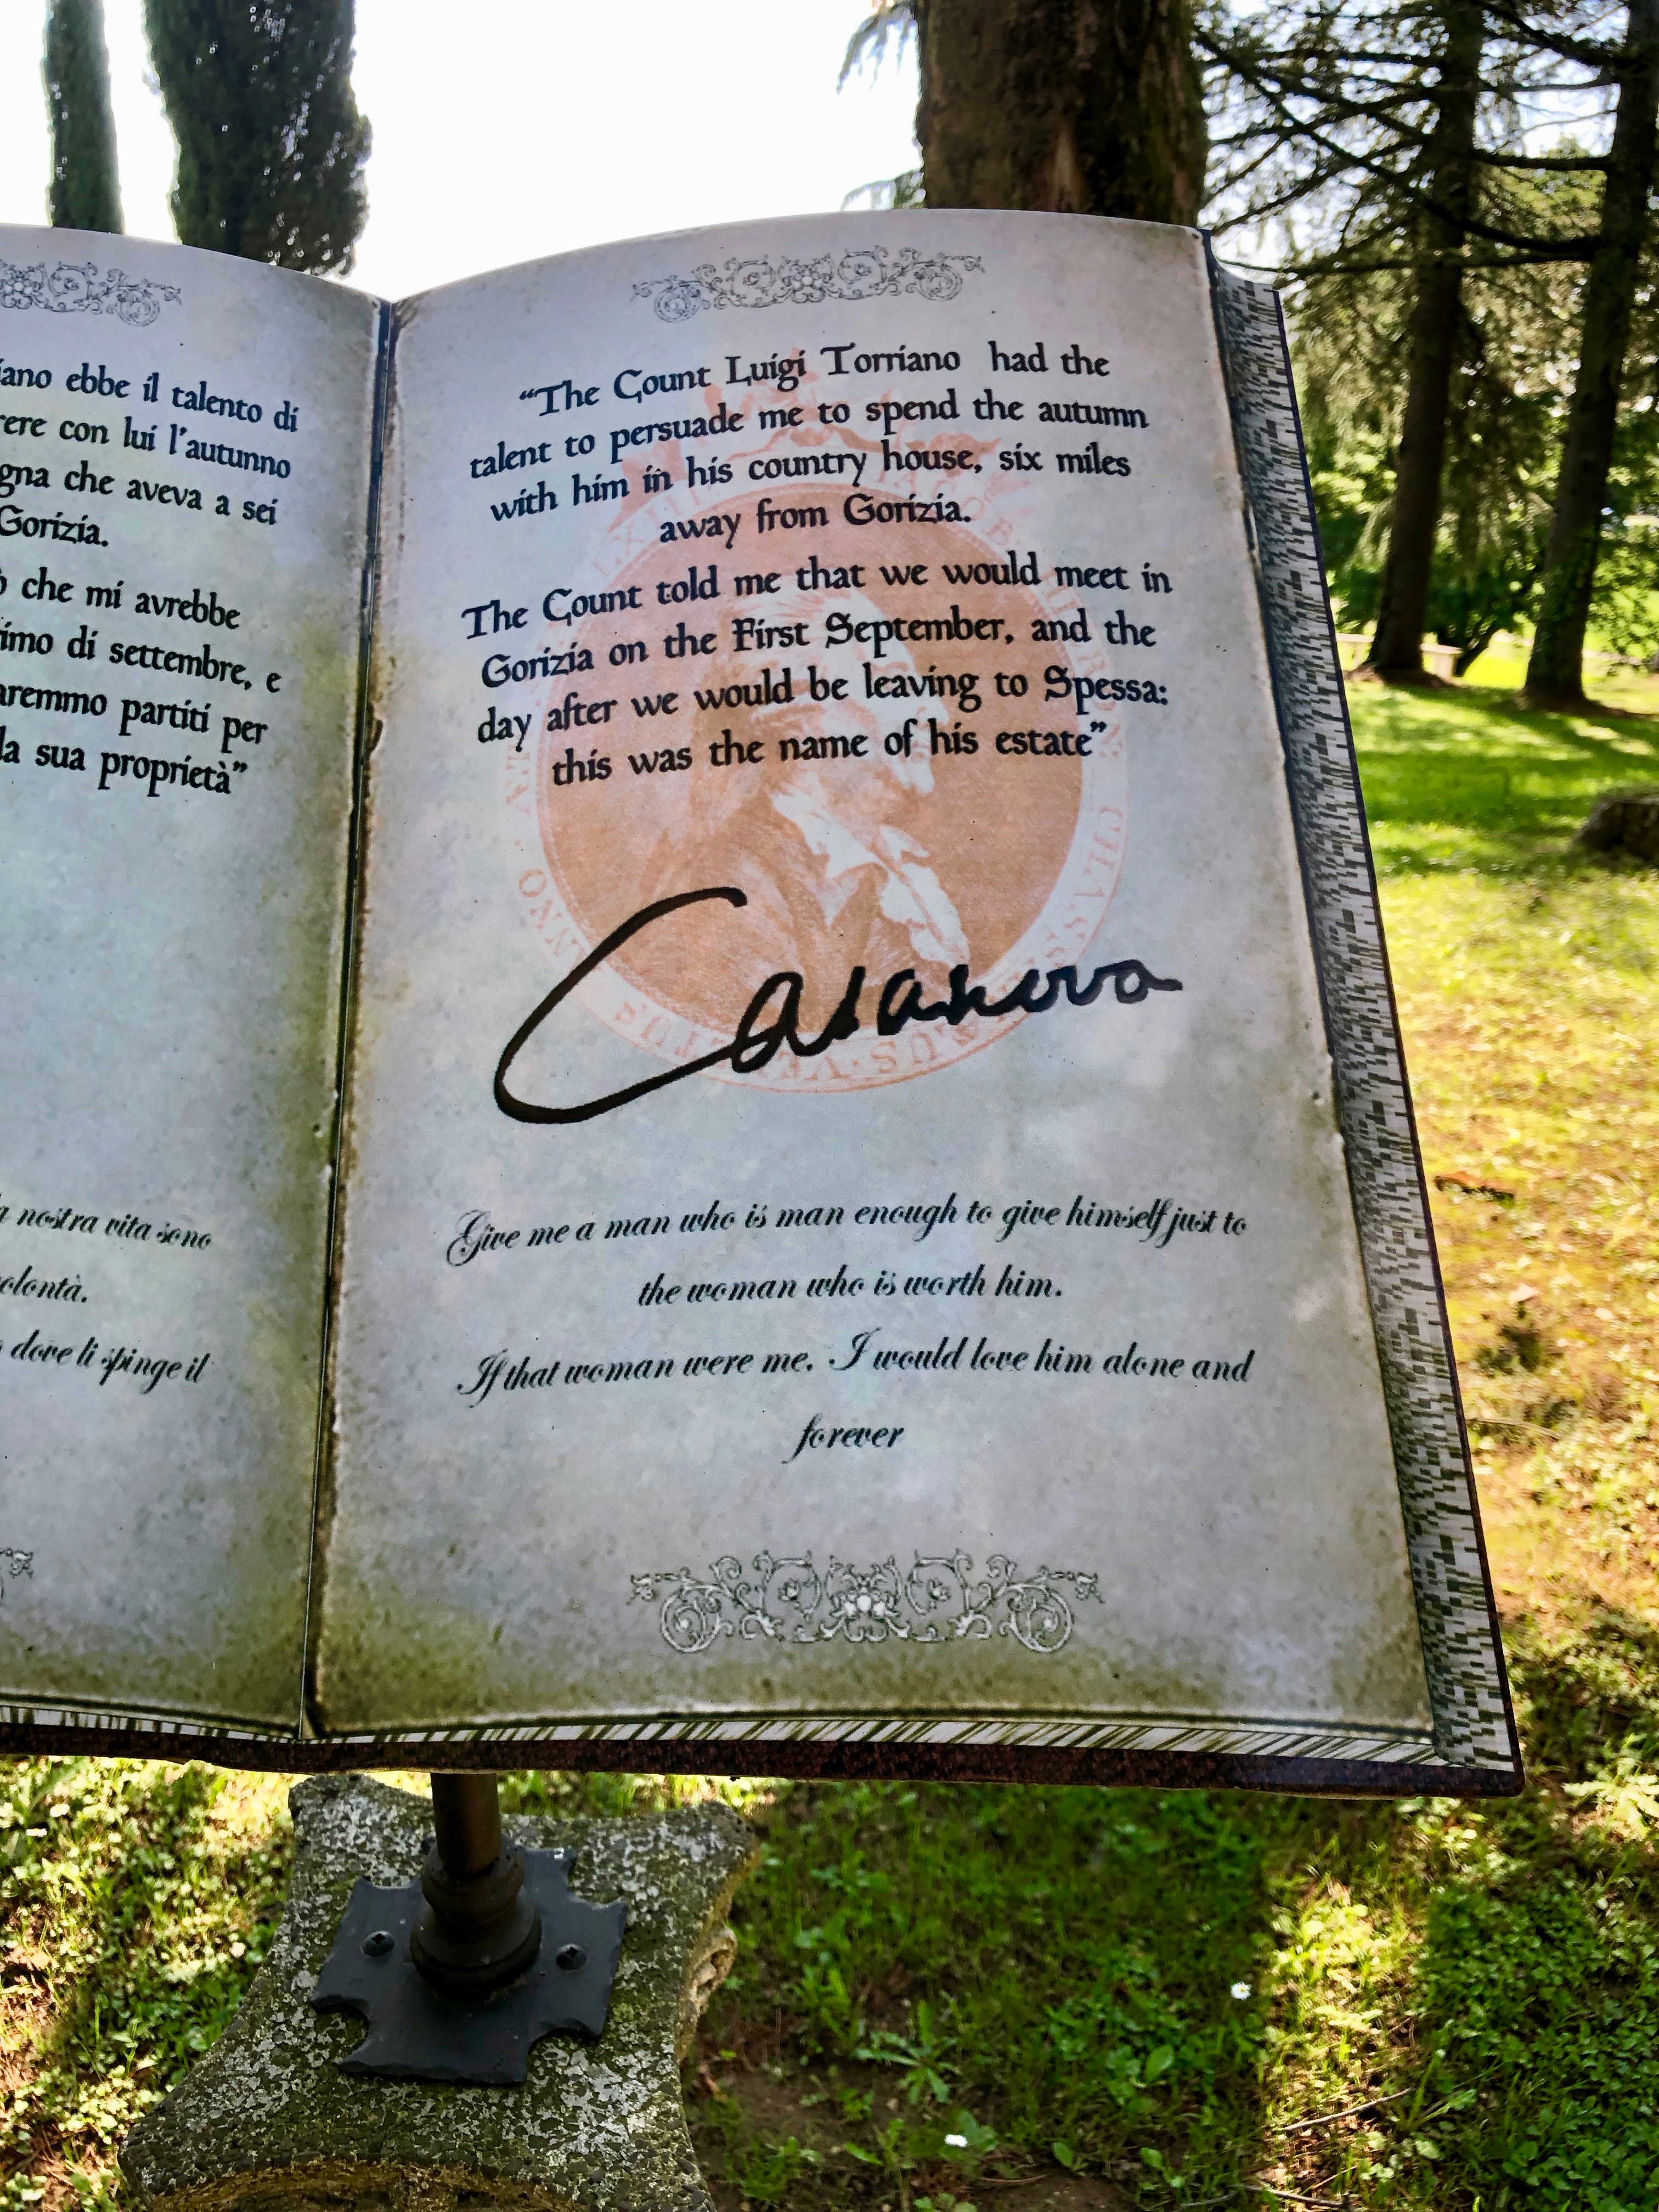 ebbe il talento di
con lui l'autunno
che aveva a sei
Gorizia.
che mi avrebbe
di settembre, e
partiti per
sua proprietà"
nostra vita sono
dove li spinge il
“The Count Luigi Torriano had the
talent to persuade me to spend the autumn
with him in his country house, six miles
away from Gorizia.
The Count told me that we would meet in
Gorizia on the First September, and the
day after we would be leaving to Spessa:
this was the name of his estate”
Casanova
Give me a man who is man enough to give himself just to
the woman who is worth him.
If that woman were me. I would love him alone and
forever